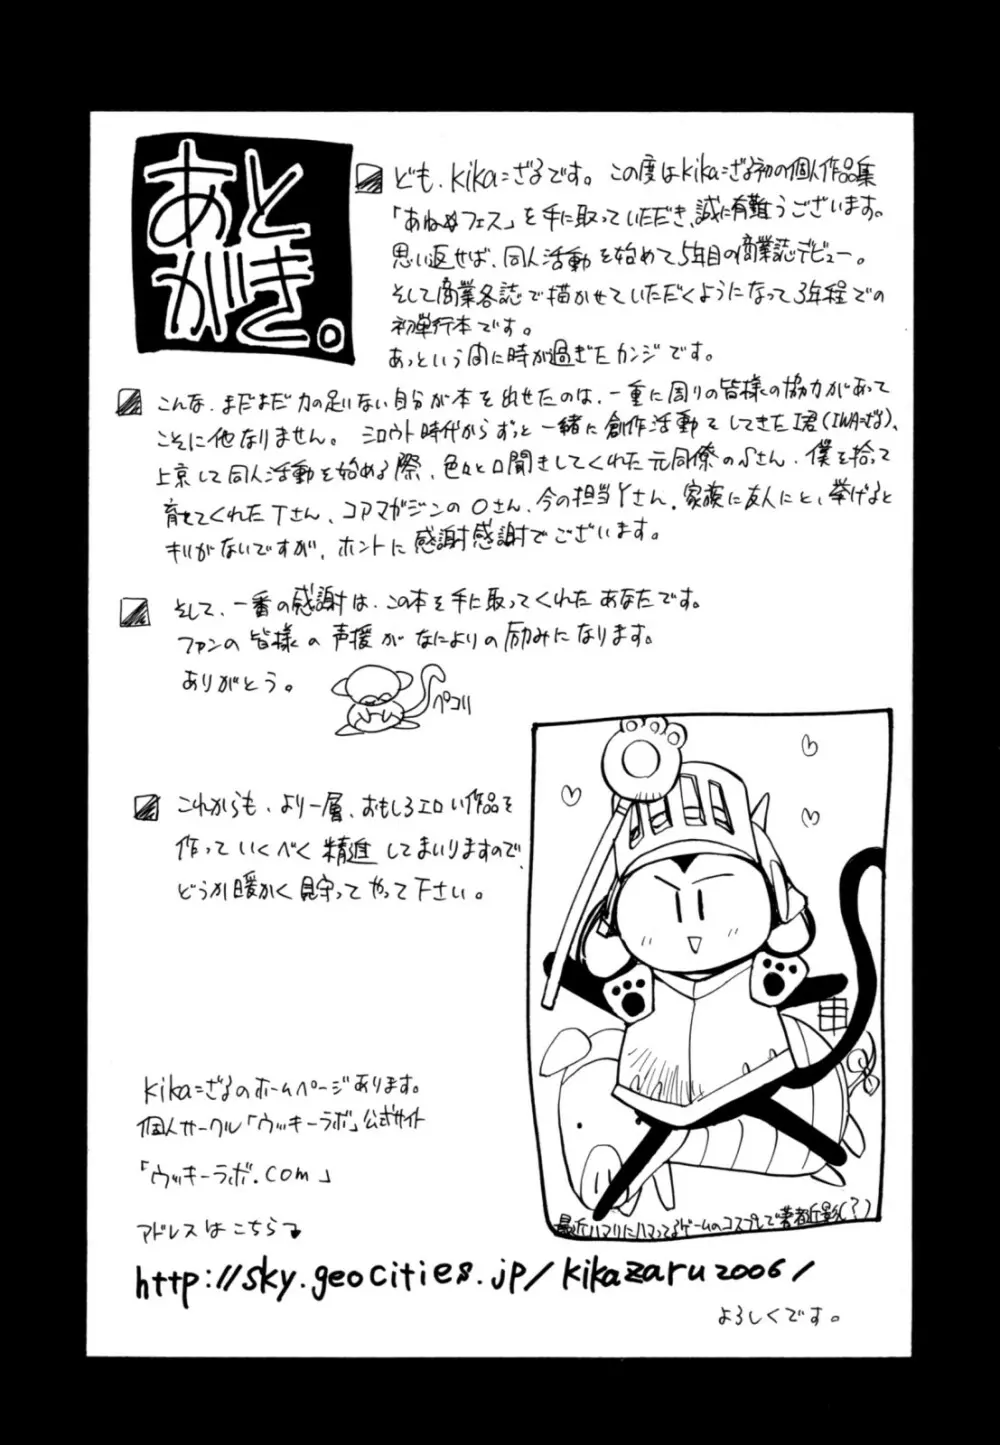 あと
がき。
ども、kika=ざるです。この度はkika=ざる初の個人作品集
「あねめフェス」を手に取っていただき、誠に有難うございます。
思い返せば、同人活動を始めて5年目の商業誌デビュー。
そして商業各誌で描かせていただくようになって3年程での
初単行本です。
あっという間に時が過ぎたカンジです。
こんな、まだまだ力の足りない自分が本を出せたのは、一重に周りの皆様の協力があって
ことに他なりません。シロウト時代からずっと一緒に創作活動をしてきたI君(IWA=ざる)、
上京して同人活動を始める際、色々と口聞きしてくれた元同僚のSさん、僕を拾って
育ててくれたTさん、コアマガジンのOさん、今の担当Yさん、家族に友人にと、挙げると
キリがないですが、ホントに感謝感謝でございます。
そして、一番の感謝は、この本を手に取ってくれたあなたです。
ファンの皆様の声援がなによりの励みになります。
ありがとう。
ペコリ
これからも、より一層、おもしろエロい作品を
作っていくべく精進してまいりますので、
どうか暖かく見守ってやって下さい。
申
最近ハマりにハマってるゲームのコスプレで著者近影(?)
kika=ざるのホームページあります。
個人サークル「ウッキーラボ」公式サイト
「ウッキーラボ.com」
アドレスはこちら
http://sky.geocities.jp/kikazaru2006/
よろしくです。